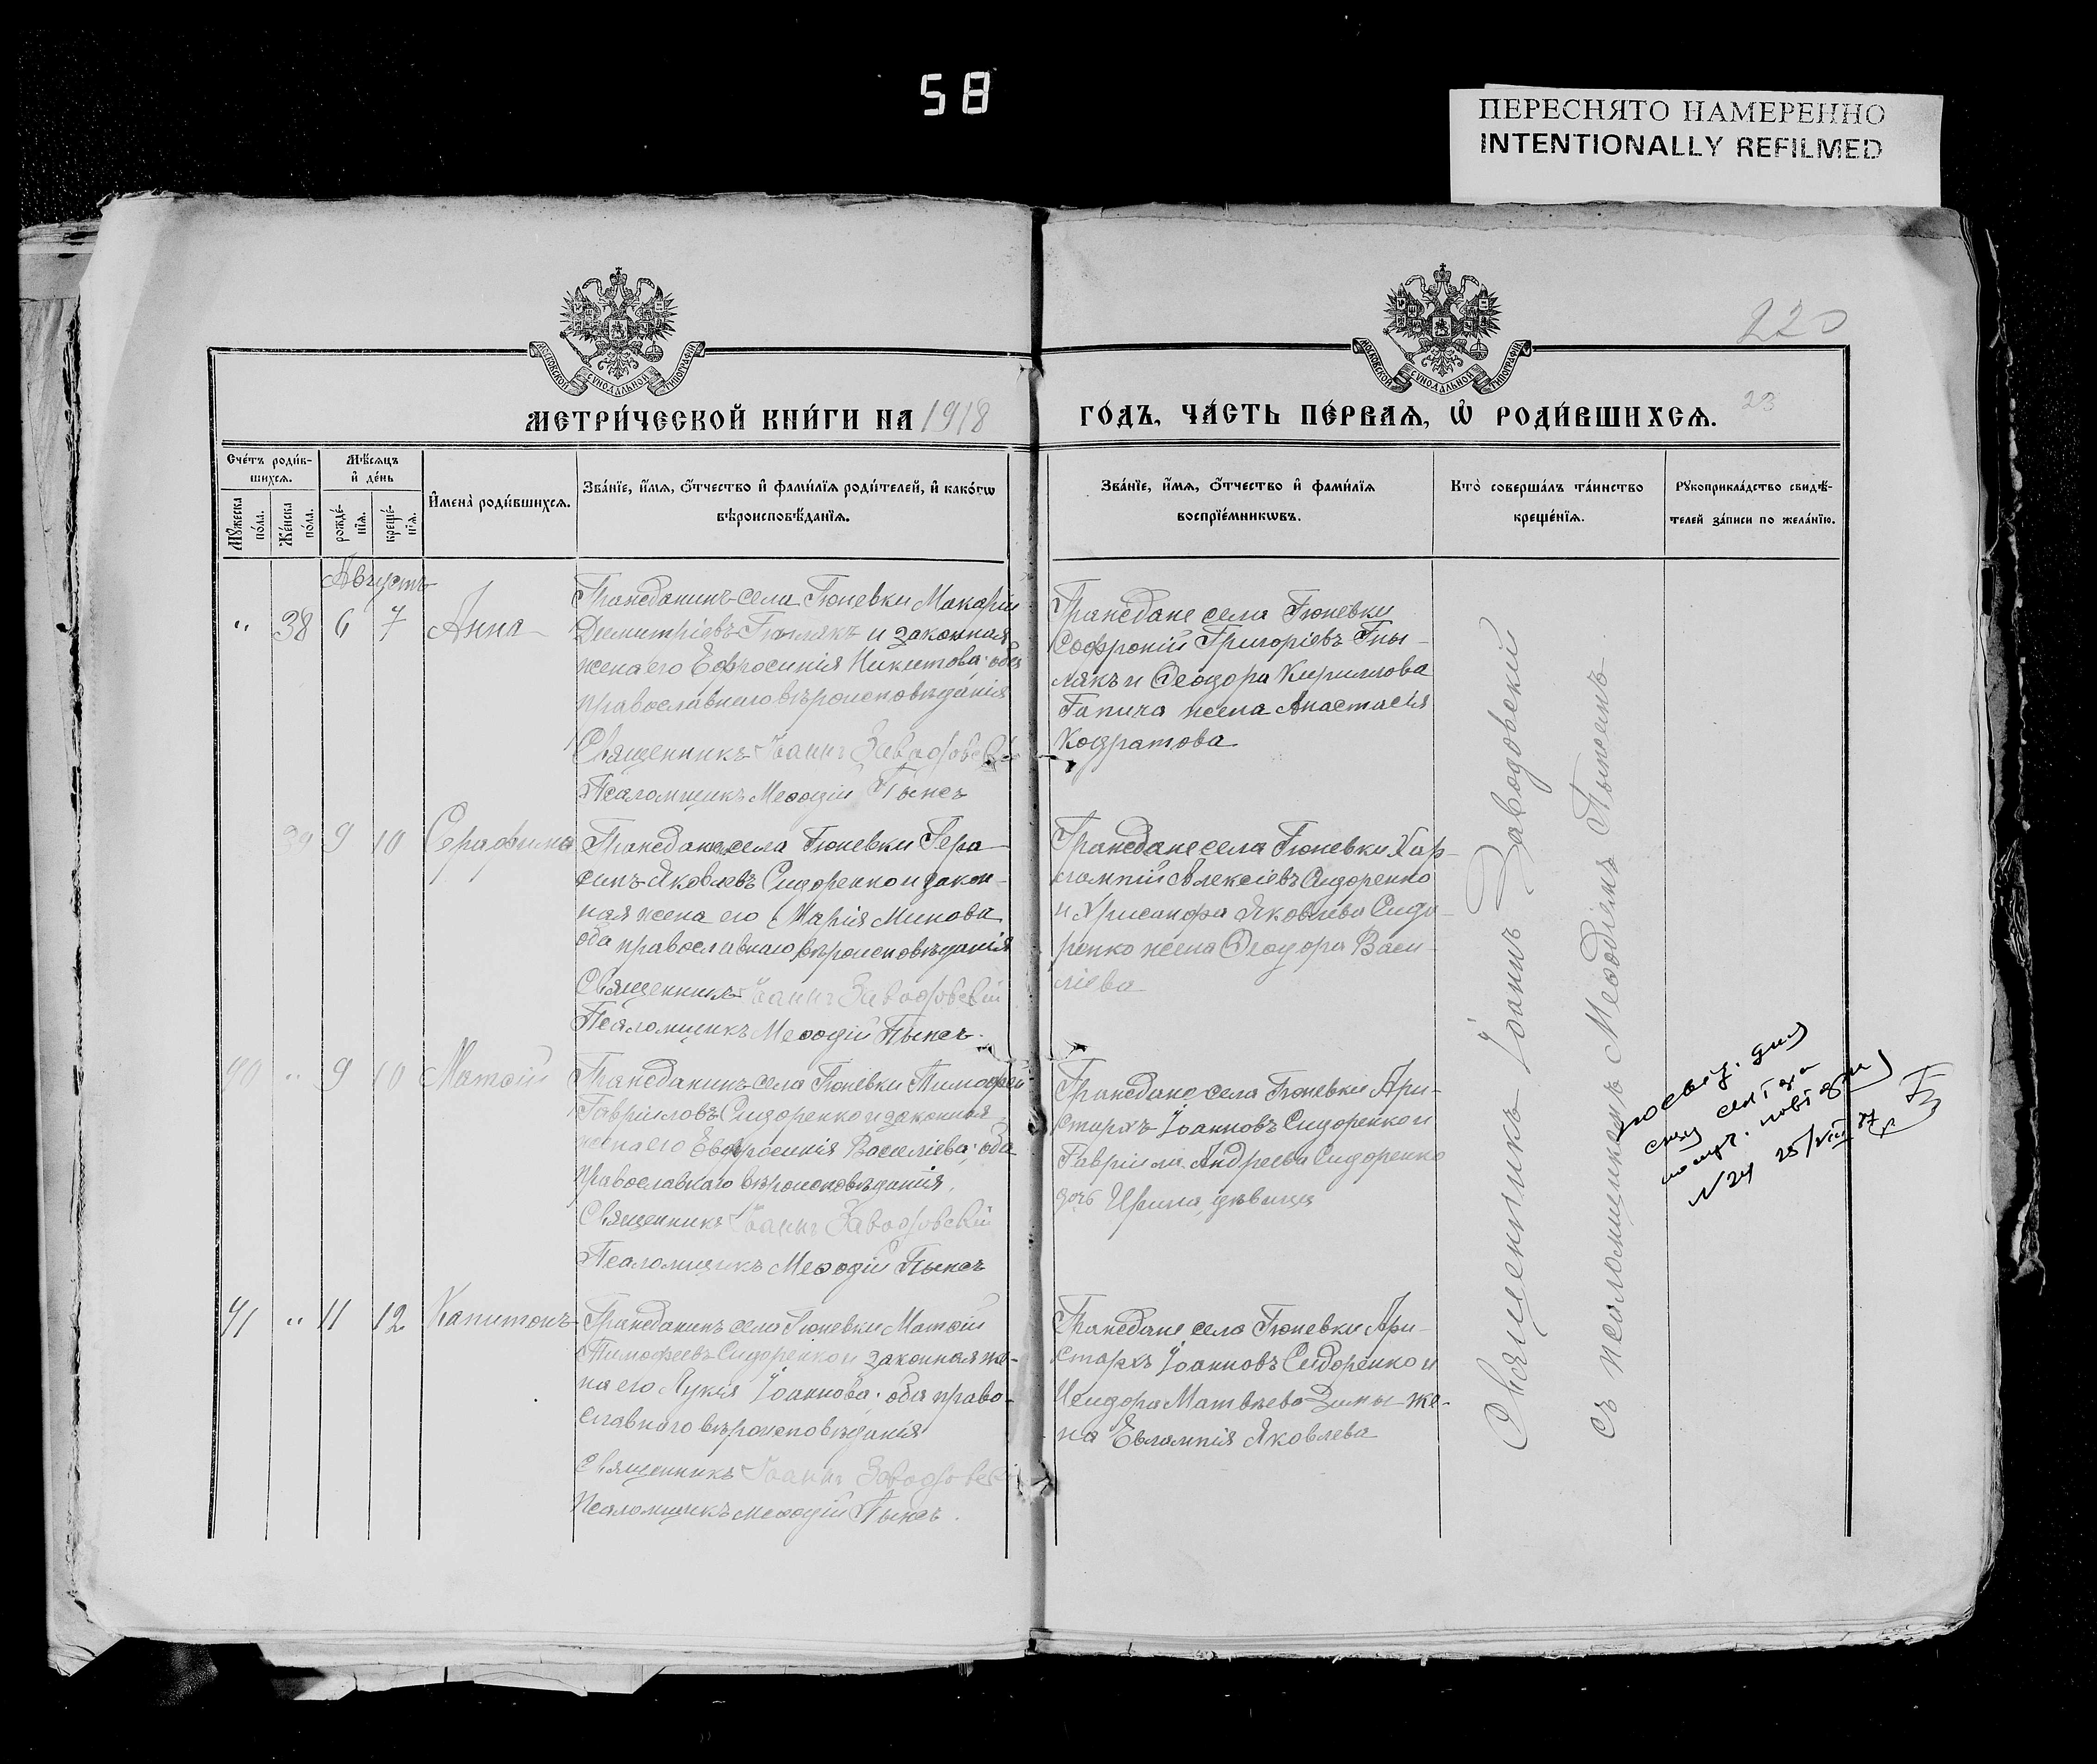 58
ПЕРЕСНЯТО НАМЕРЕННО
INTENTIONALLY REFILMED
220
МОСКОВСКОЙ СѴНОДАЛЬНОЙ ТИПОГРАФІИ
МОСКОВСКОЙ СѴНОДАЛЬНОЙ ТИПОГРАФІИ
МЕТРИ́ЧЕСКОЙ КНИ́ГИ НА 1918
ГО́ДЪ, ЧА́СТЬ ПЕ́РВАѦ, Ѡ҆ РОДИ́ВШИХСѦ.
23
Сче́тъ роди́в-
шихсѧ.
Мꙋ́жеска по́ла.
Же́нска по́ла.
Мѣ́сѧцъ
и҆ де́нь
рожде́-
нїѧ.
креще́-
нїѧ.
И҆мена̀ роди́вшихсѧ.
Зва́нїе, и҆́мѧ, ѻ҆́тчество и҆ фами́лїѧ роди́телей, и҆ како́гѡ
вѣроисповѣ́данїѧ.
Зва́нїе, и҆́мѧ, ѻ҆́тчество и҆ фами́лїѧ
воспрїе́мникѡвъ.
Кто̀ соверша́лъ та́инство
креще́нїѧ.
Рꙋкоприкла́дство свидѣ́-
телей за́писи по жела́нїю.
Августъ
" 38 6 7 Анна
Гражданинъ села Гюневки Макарій
Димитріевъ и законная
жена его Ефросинія Никитова; оба
православнаго вѣроисповѣданія
Священникъ Іоаннъ Заводовскій
Псаломщикъ Меѳодій
Граждане села Гюневки
Софроній Григоріевъ Гны-
лякъ и Ѳеодора Кириллова
Гапича жена Анастасія
Кодратова
39 9 10 Серафима
Гражданинъ села Гюневки Гера-
симъ Яковлевъ Сидоренко и закон-
ная жена его Марія Минова
оба православнаго вѣроисповѣданія
Священникъ Іоаннъ Заводовскій
Псаломщикъ Меѳодій
Граждане села Гюневки Хар-
лампій Алексіевъ Сидоренко
и Хрисанфа Яковлева Сидо-
ренко жена Ѳеодора Васи-
ліева
40 " 9 10 Матѳій
Гражданинъ села Гюневки Тимофей
Гавріиловъ Сидоренко и законная
жена его Евфросинія Василіева; оба
православнаго вѣроисповѣданія.
Священникъ Іоаннъ Заводовскій
Псаломщикъ Меѳодій
Граждане села Гюневки Ари-
стархъ Іоанновъ Сидоренко и
Гавріила Андреева Сидоренко
дочь Ирина, дѣвица
41 " 11 12 Капитонъ
Гражданинъ села Гюневки Матѳій
Тимофеевъ Сидоренко и законная же-
на его Лукія Іоаннова; оба право-
славнаго вѣроисповѣданія
Священникъ Іоаннъ Заводовскій
Псаломщикъ Меѳодій
Граждане села Гюневки Ари-
стархъ Іоанновъ Сидоренко и
Исидора Матвѣева Зимы же-
на Евлампія Яковлева
Священникъ Іоаннъ Заводовскій
съ псаломщикомъ Меѳодіемъ
N 24 25/VIII 37